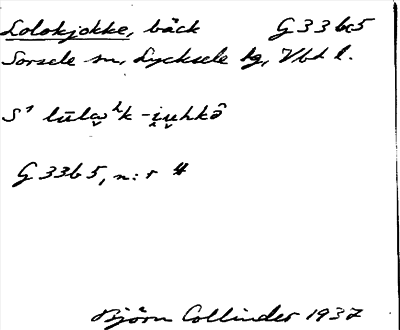 Lolokjokke, bäck G 33 b5
Sorsele sn, Lycksele lg, Vbt l.
G 33 b 5, n:r 4
Björn Collinder 1937